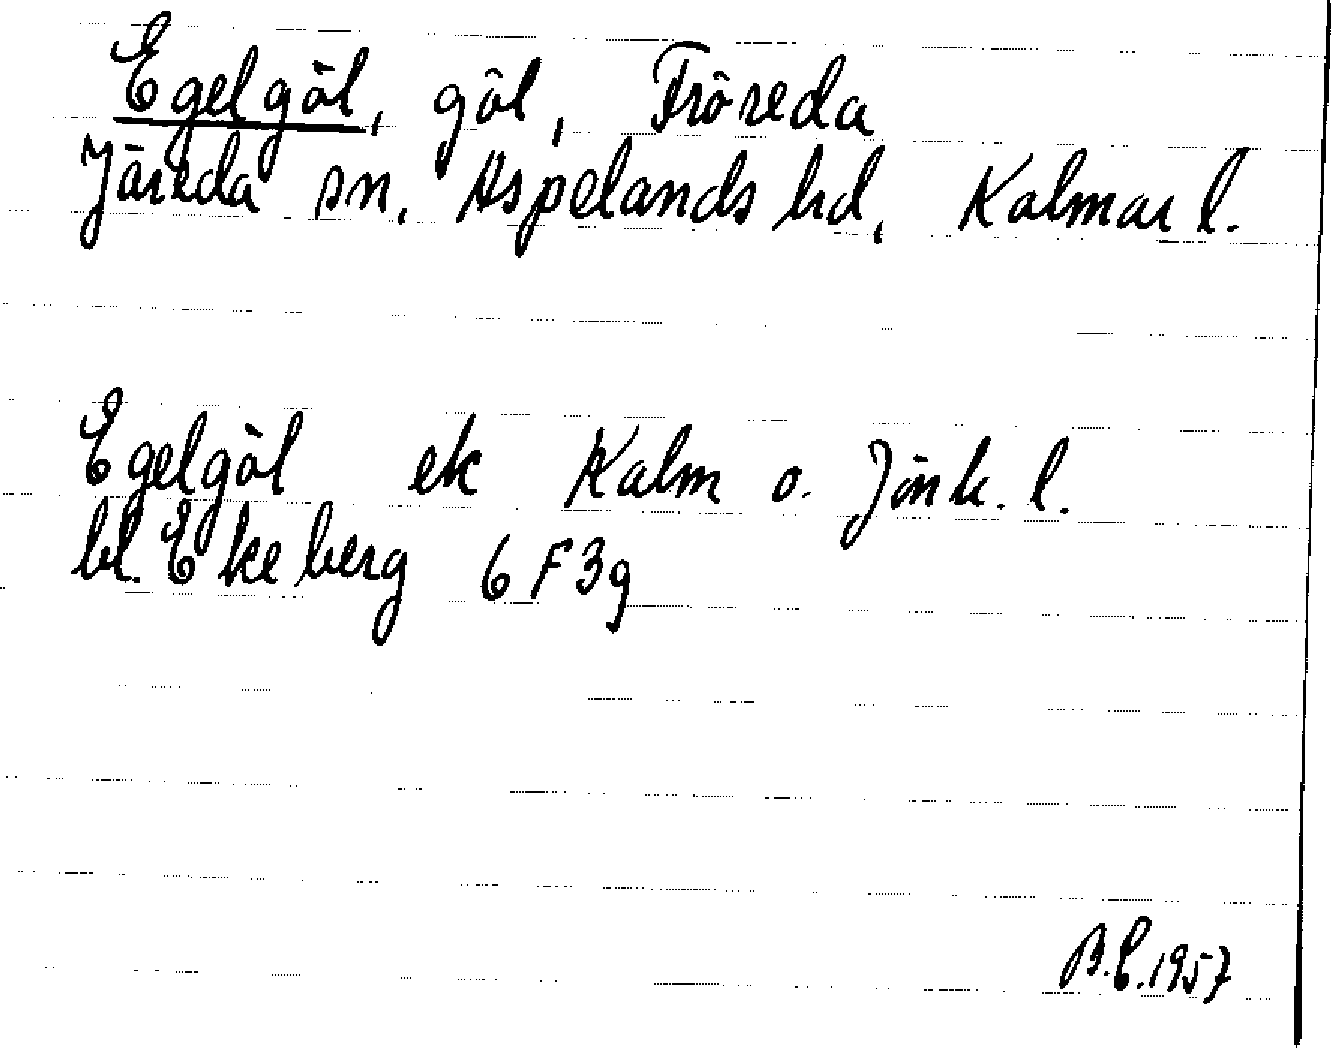 Egelgöl, göl, Fröreda
Järeda sn, Aspelands hd, Kalmar l.
Egelgöl ek Kalm o. Jönk. l.
bl. Ekeberg 6F3g
B.E.1957